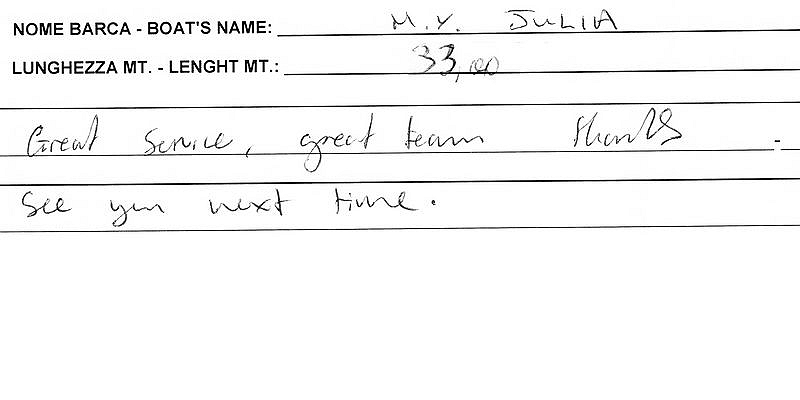 NOME BARCA - BOAT'S NAME: M.Y. JULIA
LUNGHEZZA MT. - LENGHT MT.: 33,00
Great service, great team thanks.
See you next time.